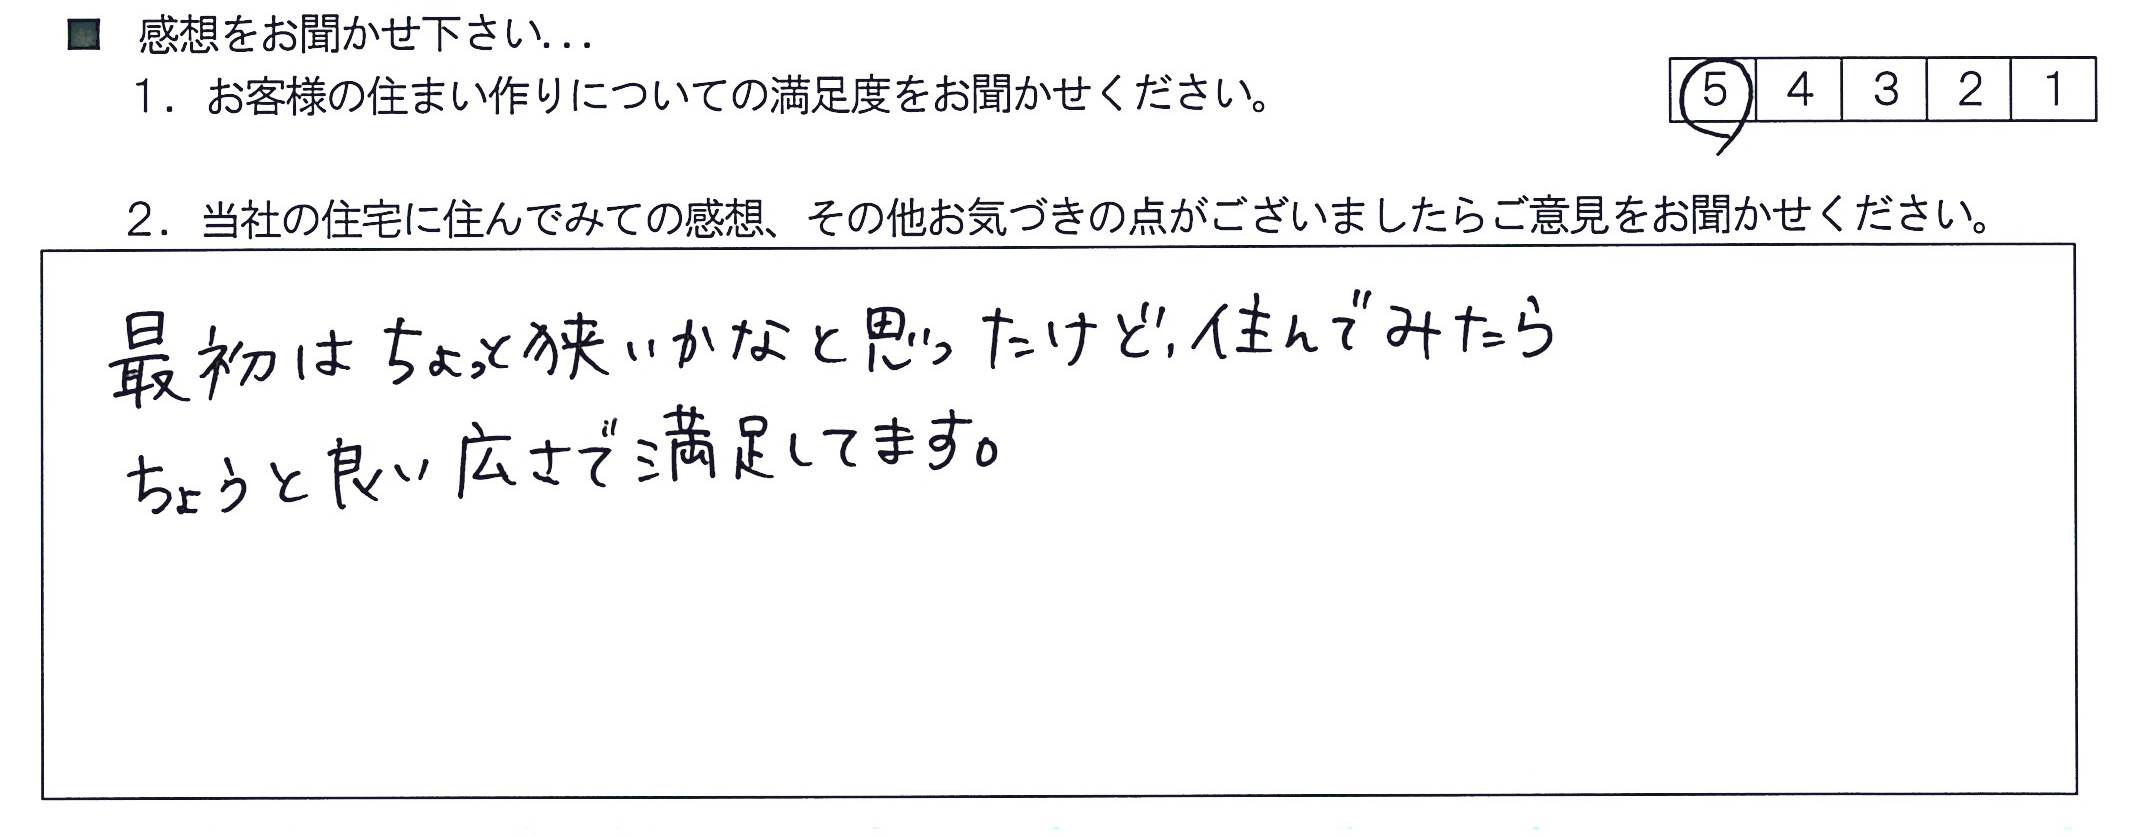 ■ 感想をお聞かせ下さい...
1. お客様の住まい作りについての満足度をお聞かせください。 5 4 3 2 1
2. 当社の住宅に住んでみての感想、その他お気づきの点がございましたらご意見をお聞かせください。
最初はちょっと狭いかなと思ったけど、住んでみたら
ちょうと良い広さで満足してます。